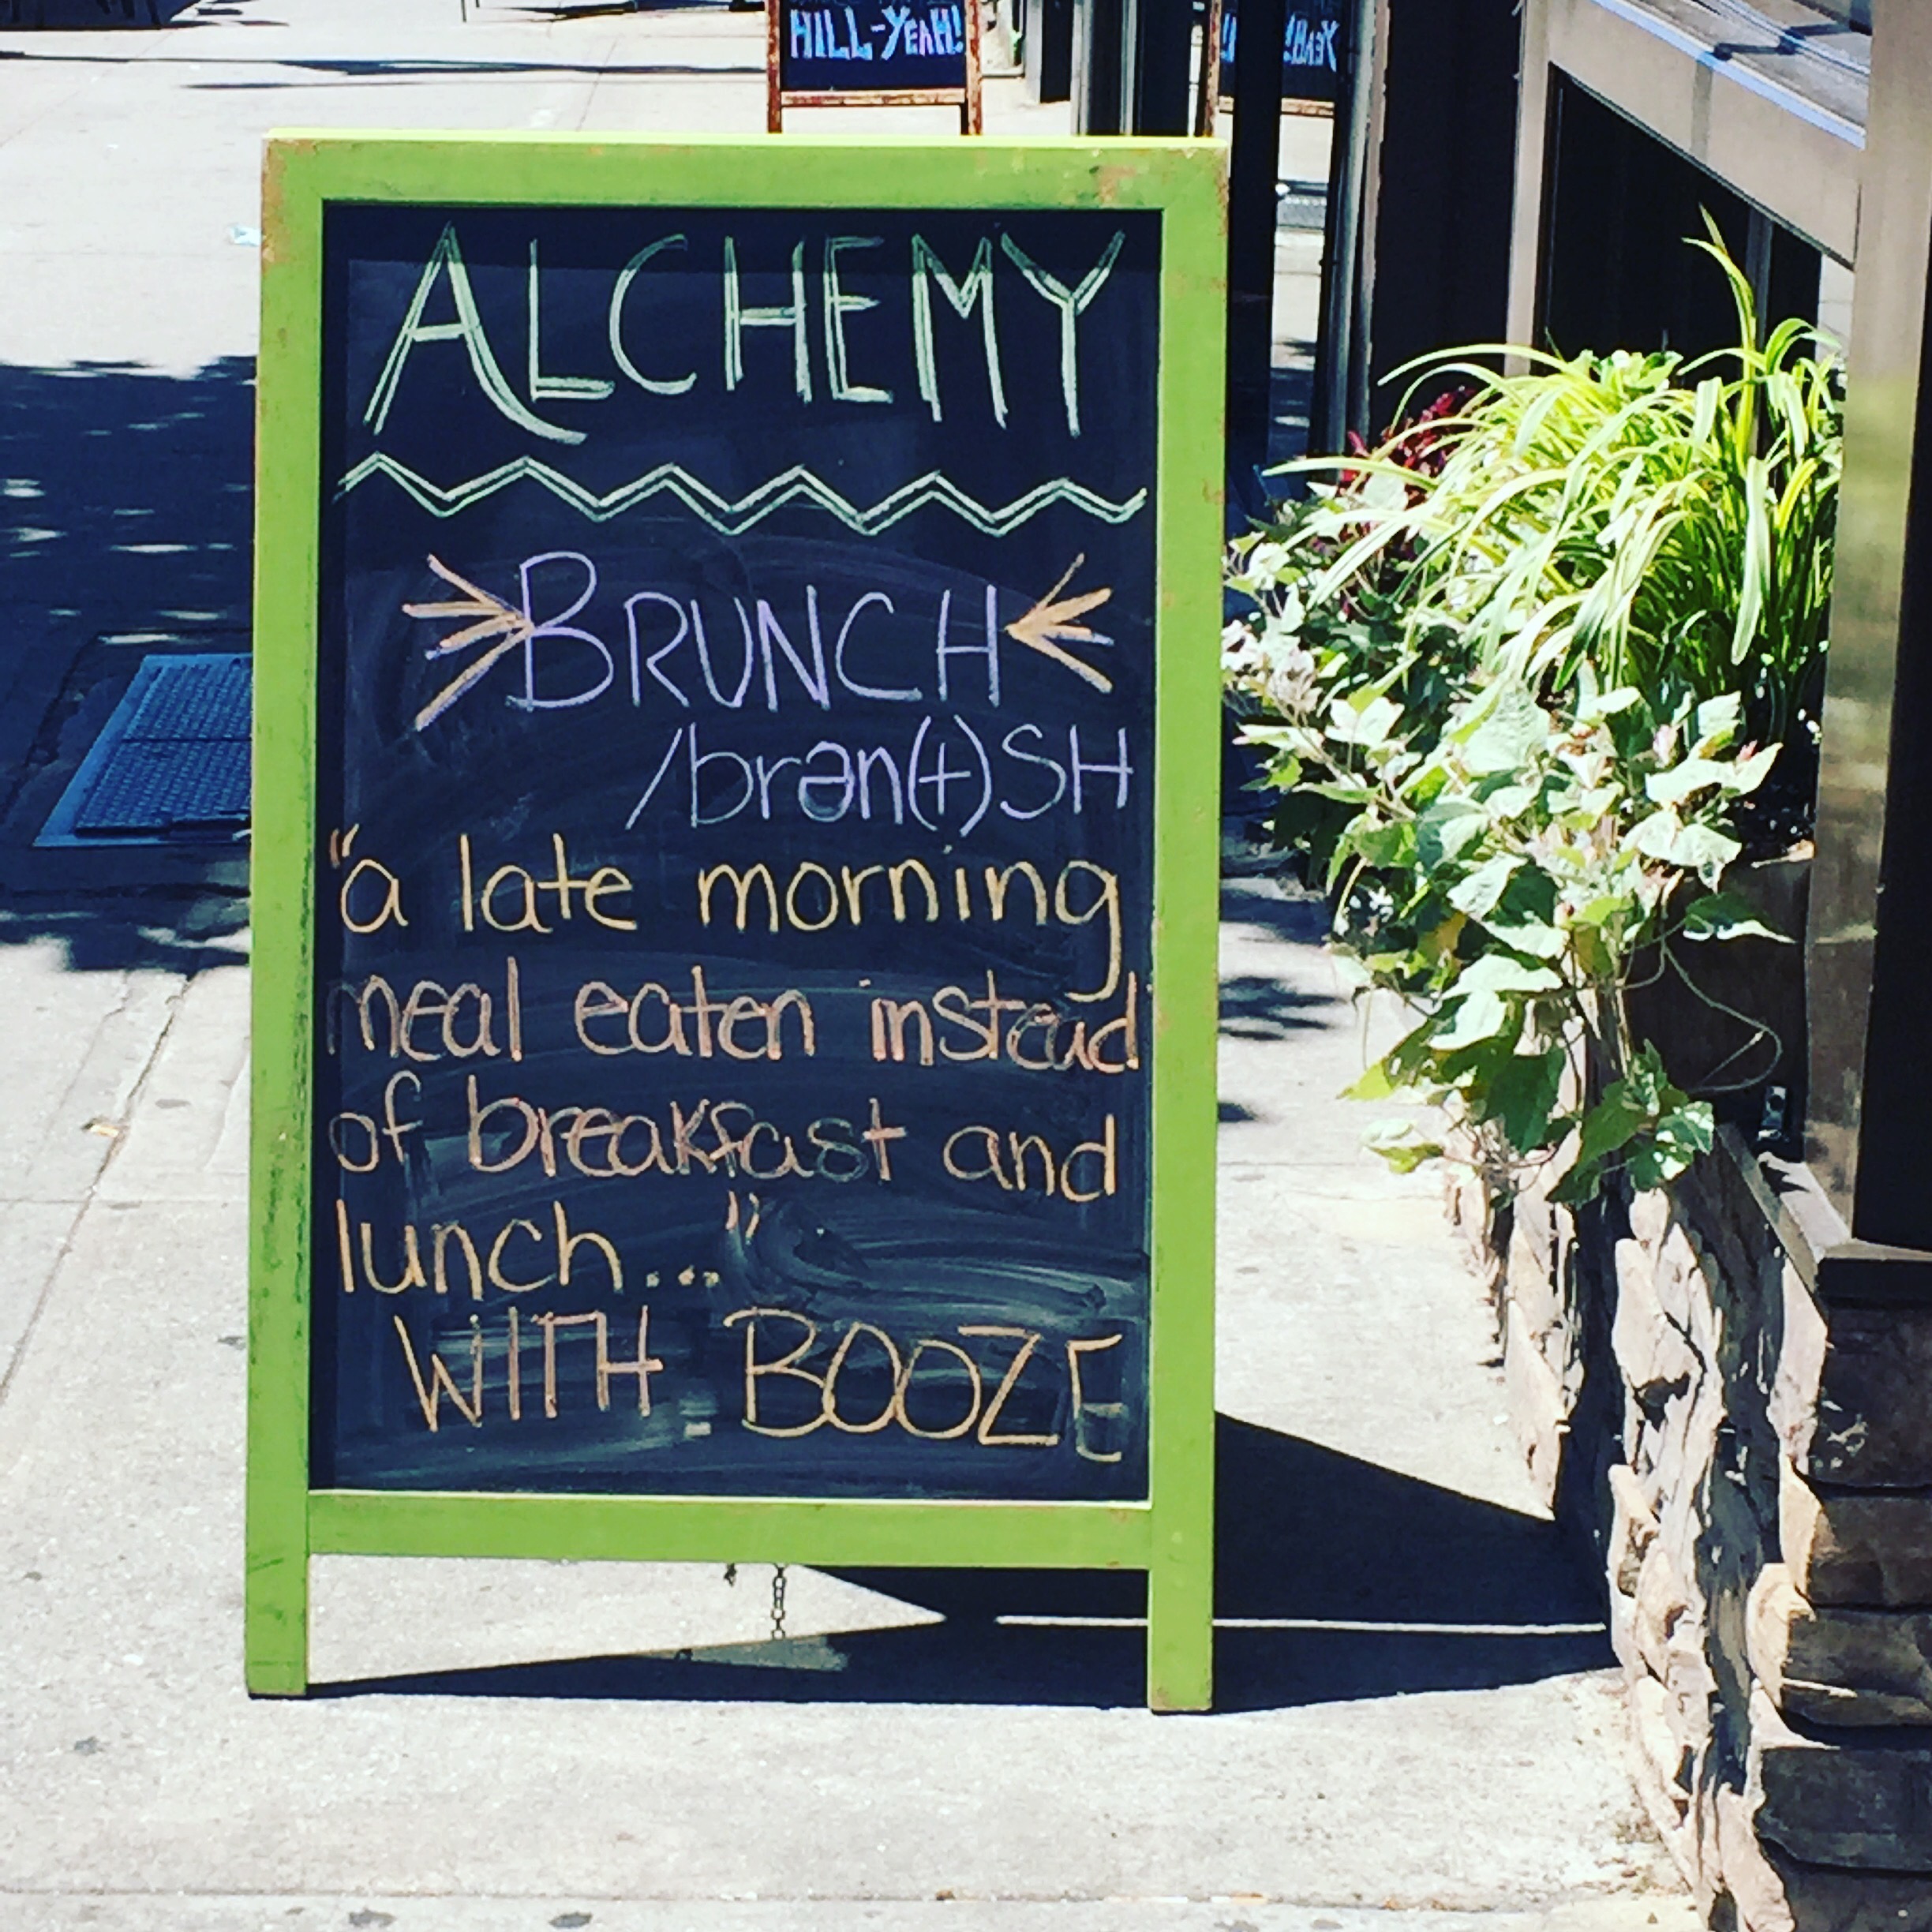 HILL-YEAH!
ALCHEMY
BRUNCH
/brən(t)SH
"a late morning
meal eaten instead
of breakfast and
lunch..."
WITH BOOZE